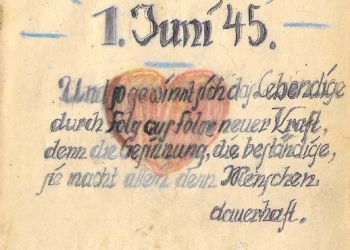 1. Juni 45.
Und so gewinnt sich das Lebendige
durch Folg aus Folge neuer Kraft,
denn die Gesinnung, die beständige,
sie macht allein den Menschen
dauerhaft.